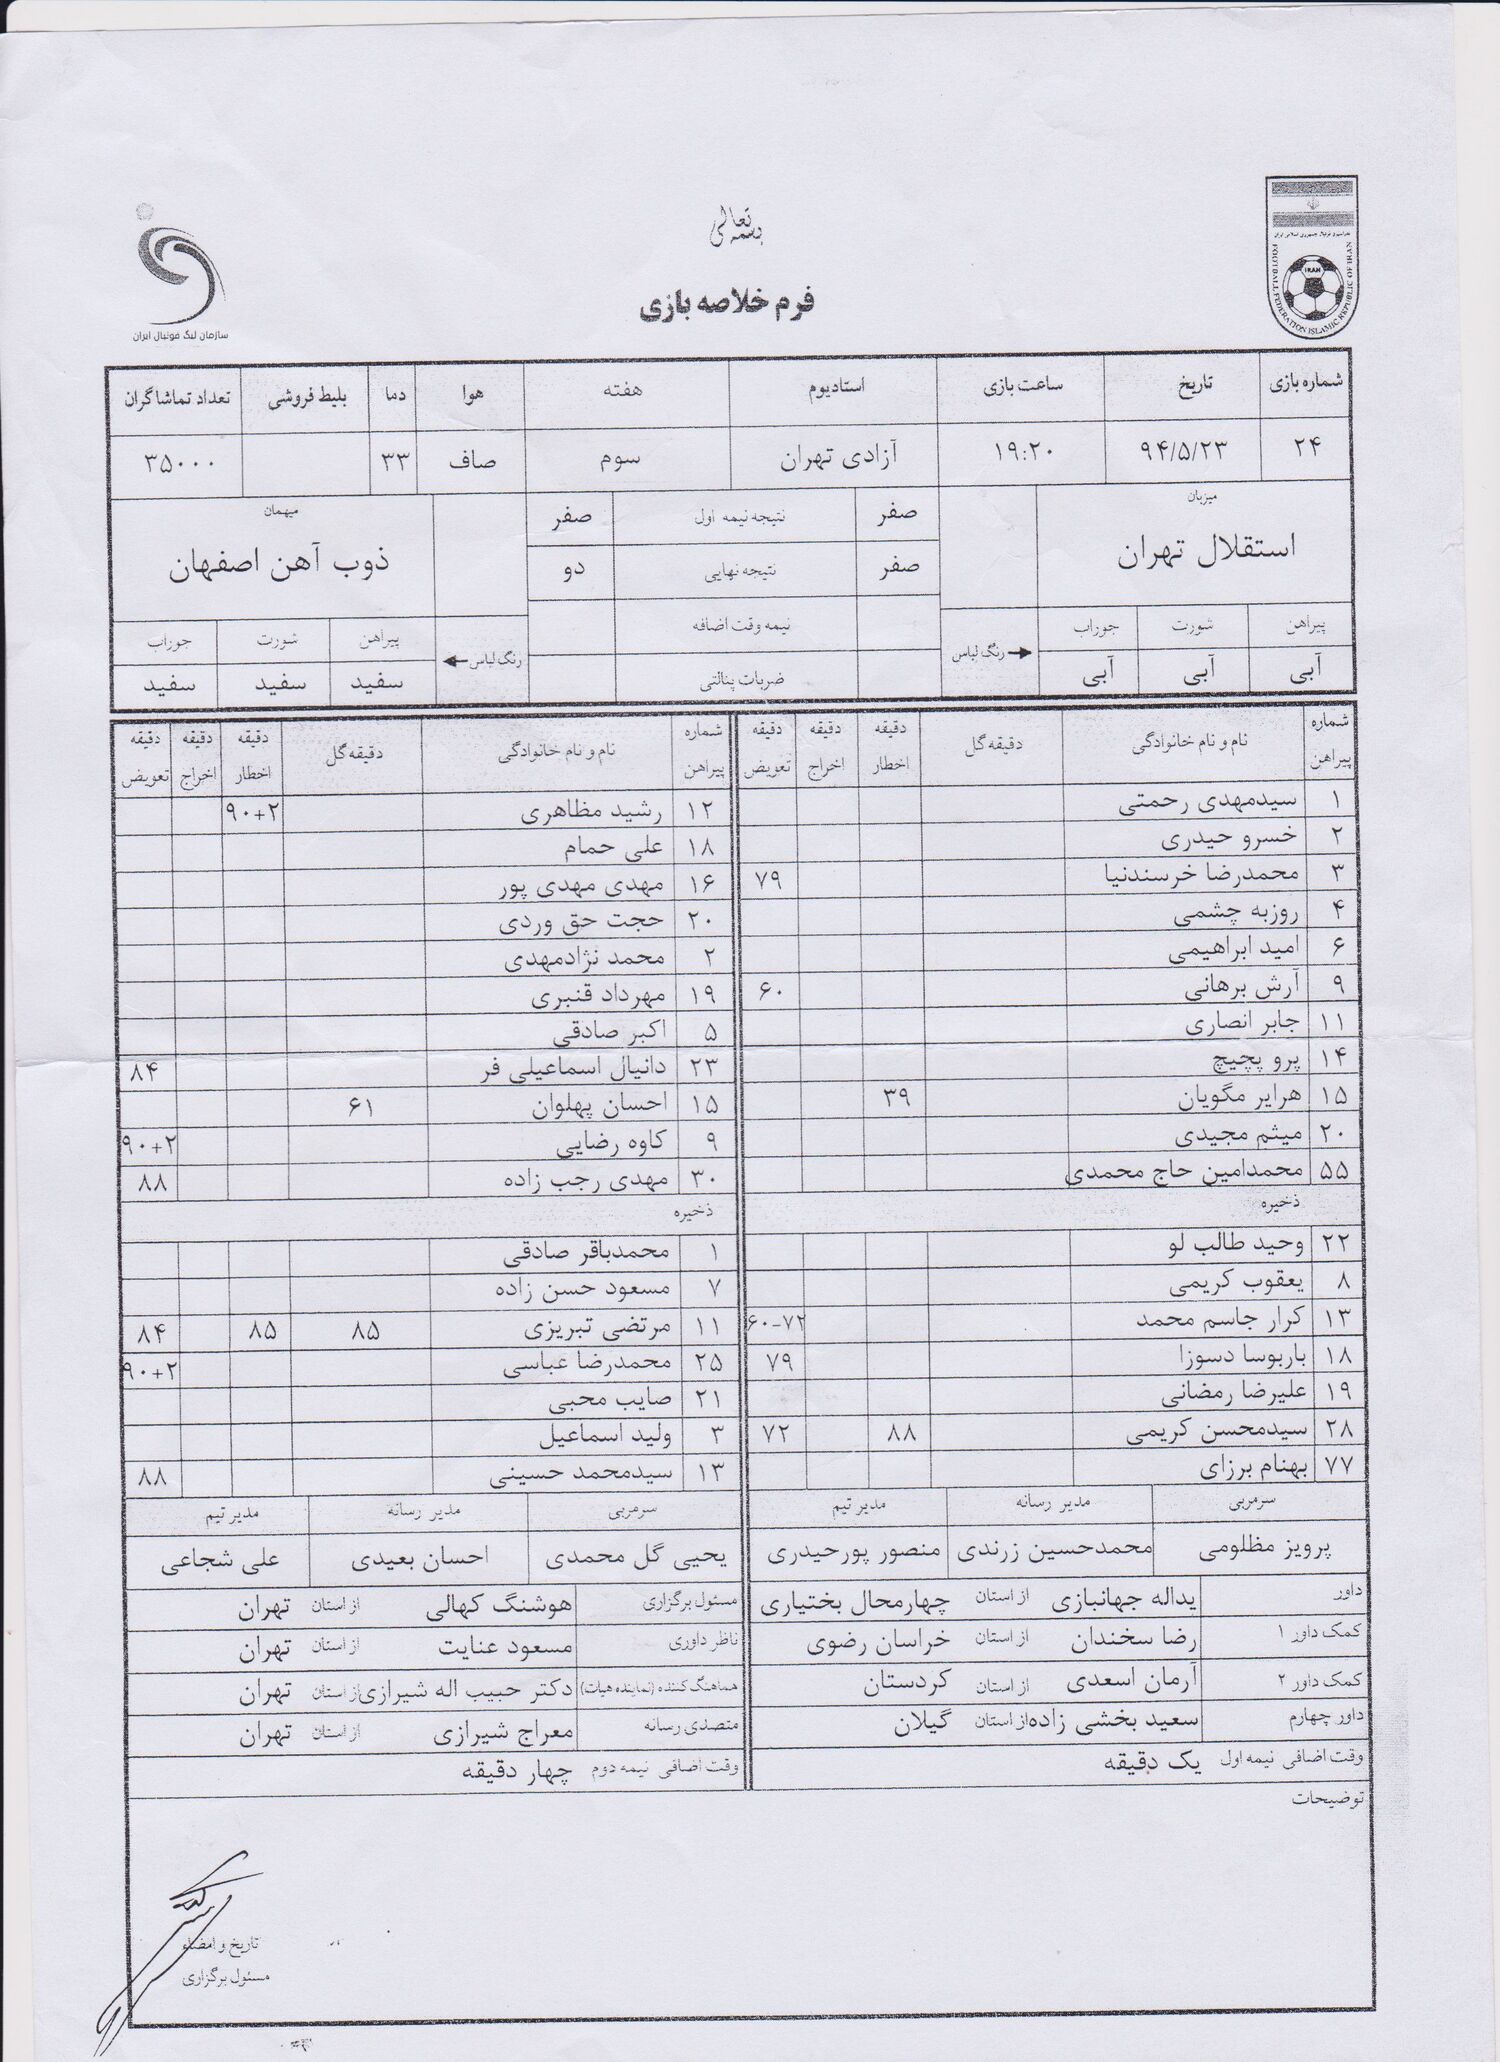 بسمه تعالی
فرم خلاصه بازی
سازمان لیگ فوتبال ایران
IRAN
FOOTBALL FEDERATION ISLAMIC REPUBLIC OF IRAN
شماره بازی تاریخ ساعت بازی استادیوم هفته هوا دما بلیط فروشی تعداد تماشاگران
۲۴ ۹۴/۵/۲۳ ۱۹:۲۰ آزادی تهران سوم صاف ۳۳ ۳۵۰۰۰
میزبان میهمان
استقلال تهران ذوب آهن اصفهان
صفر نتیجه نیمه اول صفر
صفر نتیجه نهایی دو
نیمه وقت اضافه
ضربات پنالتی
پیراهن شورت جوراب رنگ لباس پیراهن شورت جوراب
آبی آبی آبی رنگ لباس سفید سفید سفید
شماره پیراهن نام و نام خانوادگی دقیقه گل دقیقه اخطار دقیقه اخراج دقیقه تعویض شماره پیراهن نام و نام خانوادگی دقیقه گل دقیقه اخطار دقیقه اخراج دقیقه تعویض
۱ سیدمهدی رحمتی ۱۲ رشید مظاهری ۹۰+۲
۲ خسرو حیدری ۱۸ علی حمام
۳ محمدرضا خرسندنیا ۷۹ ۱۶ مهدی مهدی پور
۴ روزبه چشمی ۲۰ حجت حق وردی
۶ امید ابراهیمی ۲ محمد نژادمهدی
۹ آرش برهانی ۶۰ ۱۹ مهرداد قنبری
۱۱ جابر انصاری ۵ اکبر صادقی
۱۴ پرو پچیچ ۲۳ دانیال اسماعیلی فر ۸۴
۱۵ هرایر مگویان ۳۹ ۱۵ احسان پهلوان ۶۱
۲۰ میثم مجیدی ۹ کاوه رضایی ۹۰+۲
۵۵ محمدامین حاج محمدی ۳۰ مهدی رجب زاده ۸۸
ذخیره ذخیره
۲۲ وحید طالب لو ۱ محمدباقر صادقی
۸ یعقوب کریمی ۷ مسعود حسن زاده
۱۳ کرار جاسم محمد ۶۰-۷۲ ۱۱ مرتضی تبریزی ۸۵ ۸۵ ۸۴
۱۸ باربوسا دسوزا ۷۹ ۲۵ محمدرضا عباسی ۹۰+۲
۱۹ علیرضا رمضانی ۲۱ صایب محبی
۲۸ سیدمحسن کریمی ۸۸ ۷۲ ۳ ولید اسماعیل
۷۷ بهنام برزای ۱۳ سیدمحمد حسینی ۸۸
سرمربی مدیر رسانه مدیر تیم سرمربی مدیر رسانه مدیر تیم
پرویز مظلومی محمدحسین زرندی منصور پورحیدری یحیی گل محمدی احسان بعیدی علی شجاعی
داور یداله جهانبازی از استان چهارمحال بختیاری مسئول برگزاری هوشنگ کهالی از استان تهران
کمک داور ۱ رضا سخندان از استان خراسان رضوی ناظر داوری مسعود عنایت از استان تهران
کمک داور ۲ آرمان اسعدی از استان کردستان هماهنگ کننده (نماینده هیات) دکتر حبیب اله شیرازی از استان تهران
داور چهارم سعید بخشی زاده از استان گیلان متصدی رسانه معراج شیرازی از استان تهران
وقت اضافی نیمه اول یک دقیقه وقت اضافی نیمه دوم چهار دقیقه
توضیحات
تاریخ و امضاء
مسئول برگزاری